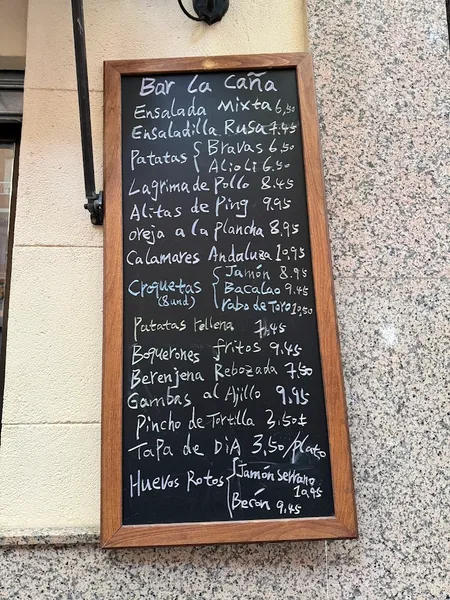 Bar La Caña
Ensalada Mixta 6,50
Ensaladilla Rusa 7.45
Patatas { Bravas 6.50
Alioli 6.50
Lagrima de Pollo 8.45
Alitas de Ping 9.95
oreja a la plancha 8,95
Calamares Andaluza 10,95
Croquetas { Jamón 8.95
(8und) Bacalao 9.45
rabo de Toro 10,50
Patatas rellena 7,45
Boquerones fritos 9.45
Berenjena Rebozada 7,50
Gambas al Ajillo 9,95
Pincho de Tortilla 3,50€
Tapa de DiA 3,50/plato
Huevos Rotos { Jamón Serrano
10,95
Becón 9.45